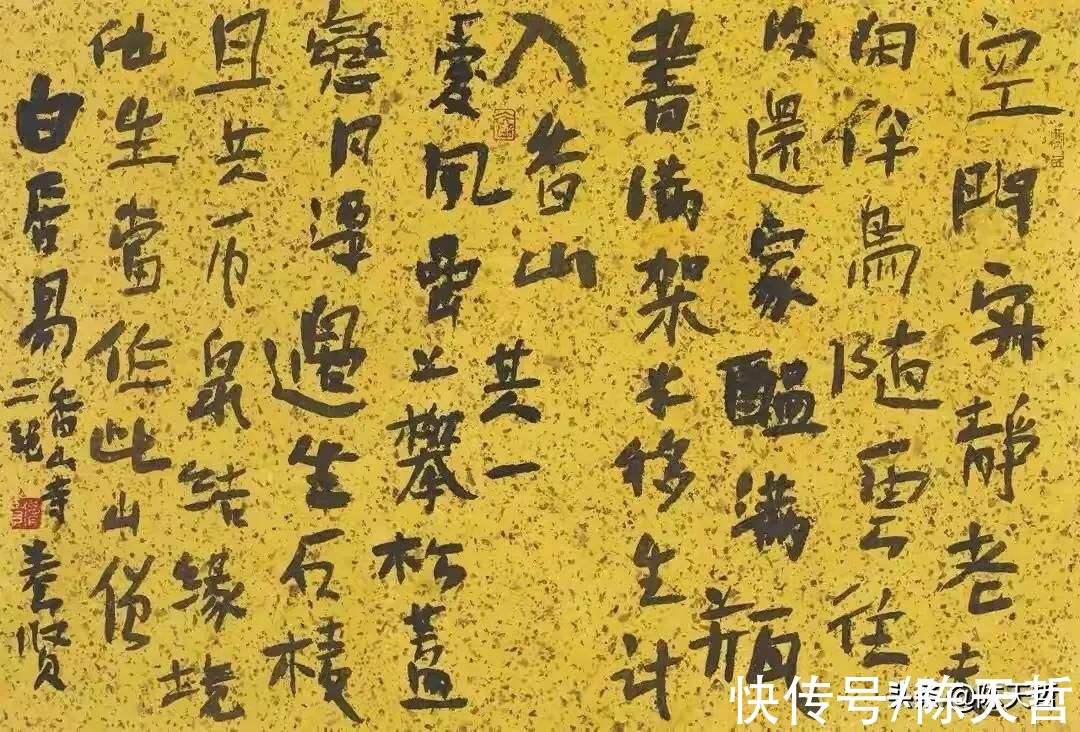 空門寂靜老夫
閑伴鳥隨雲往
復還家醞滿瓶
書滿架半移生計
入香山 其一
愛風巖上攀松蓋
戀月潭邊坐石稜
且共雲泉結緣境
他生當作此山僧
白居易香山寺
二絕
头条@陈天哲
快传号/陈天哲